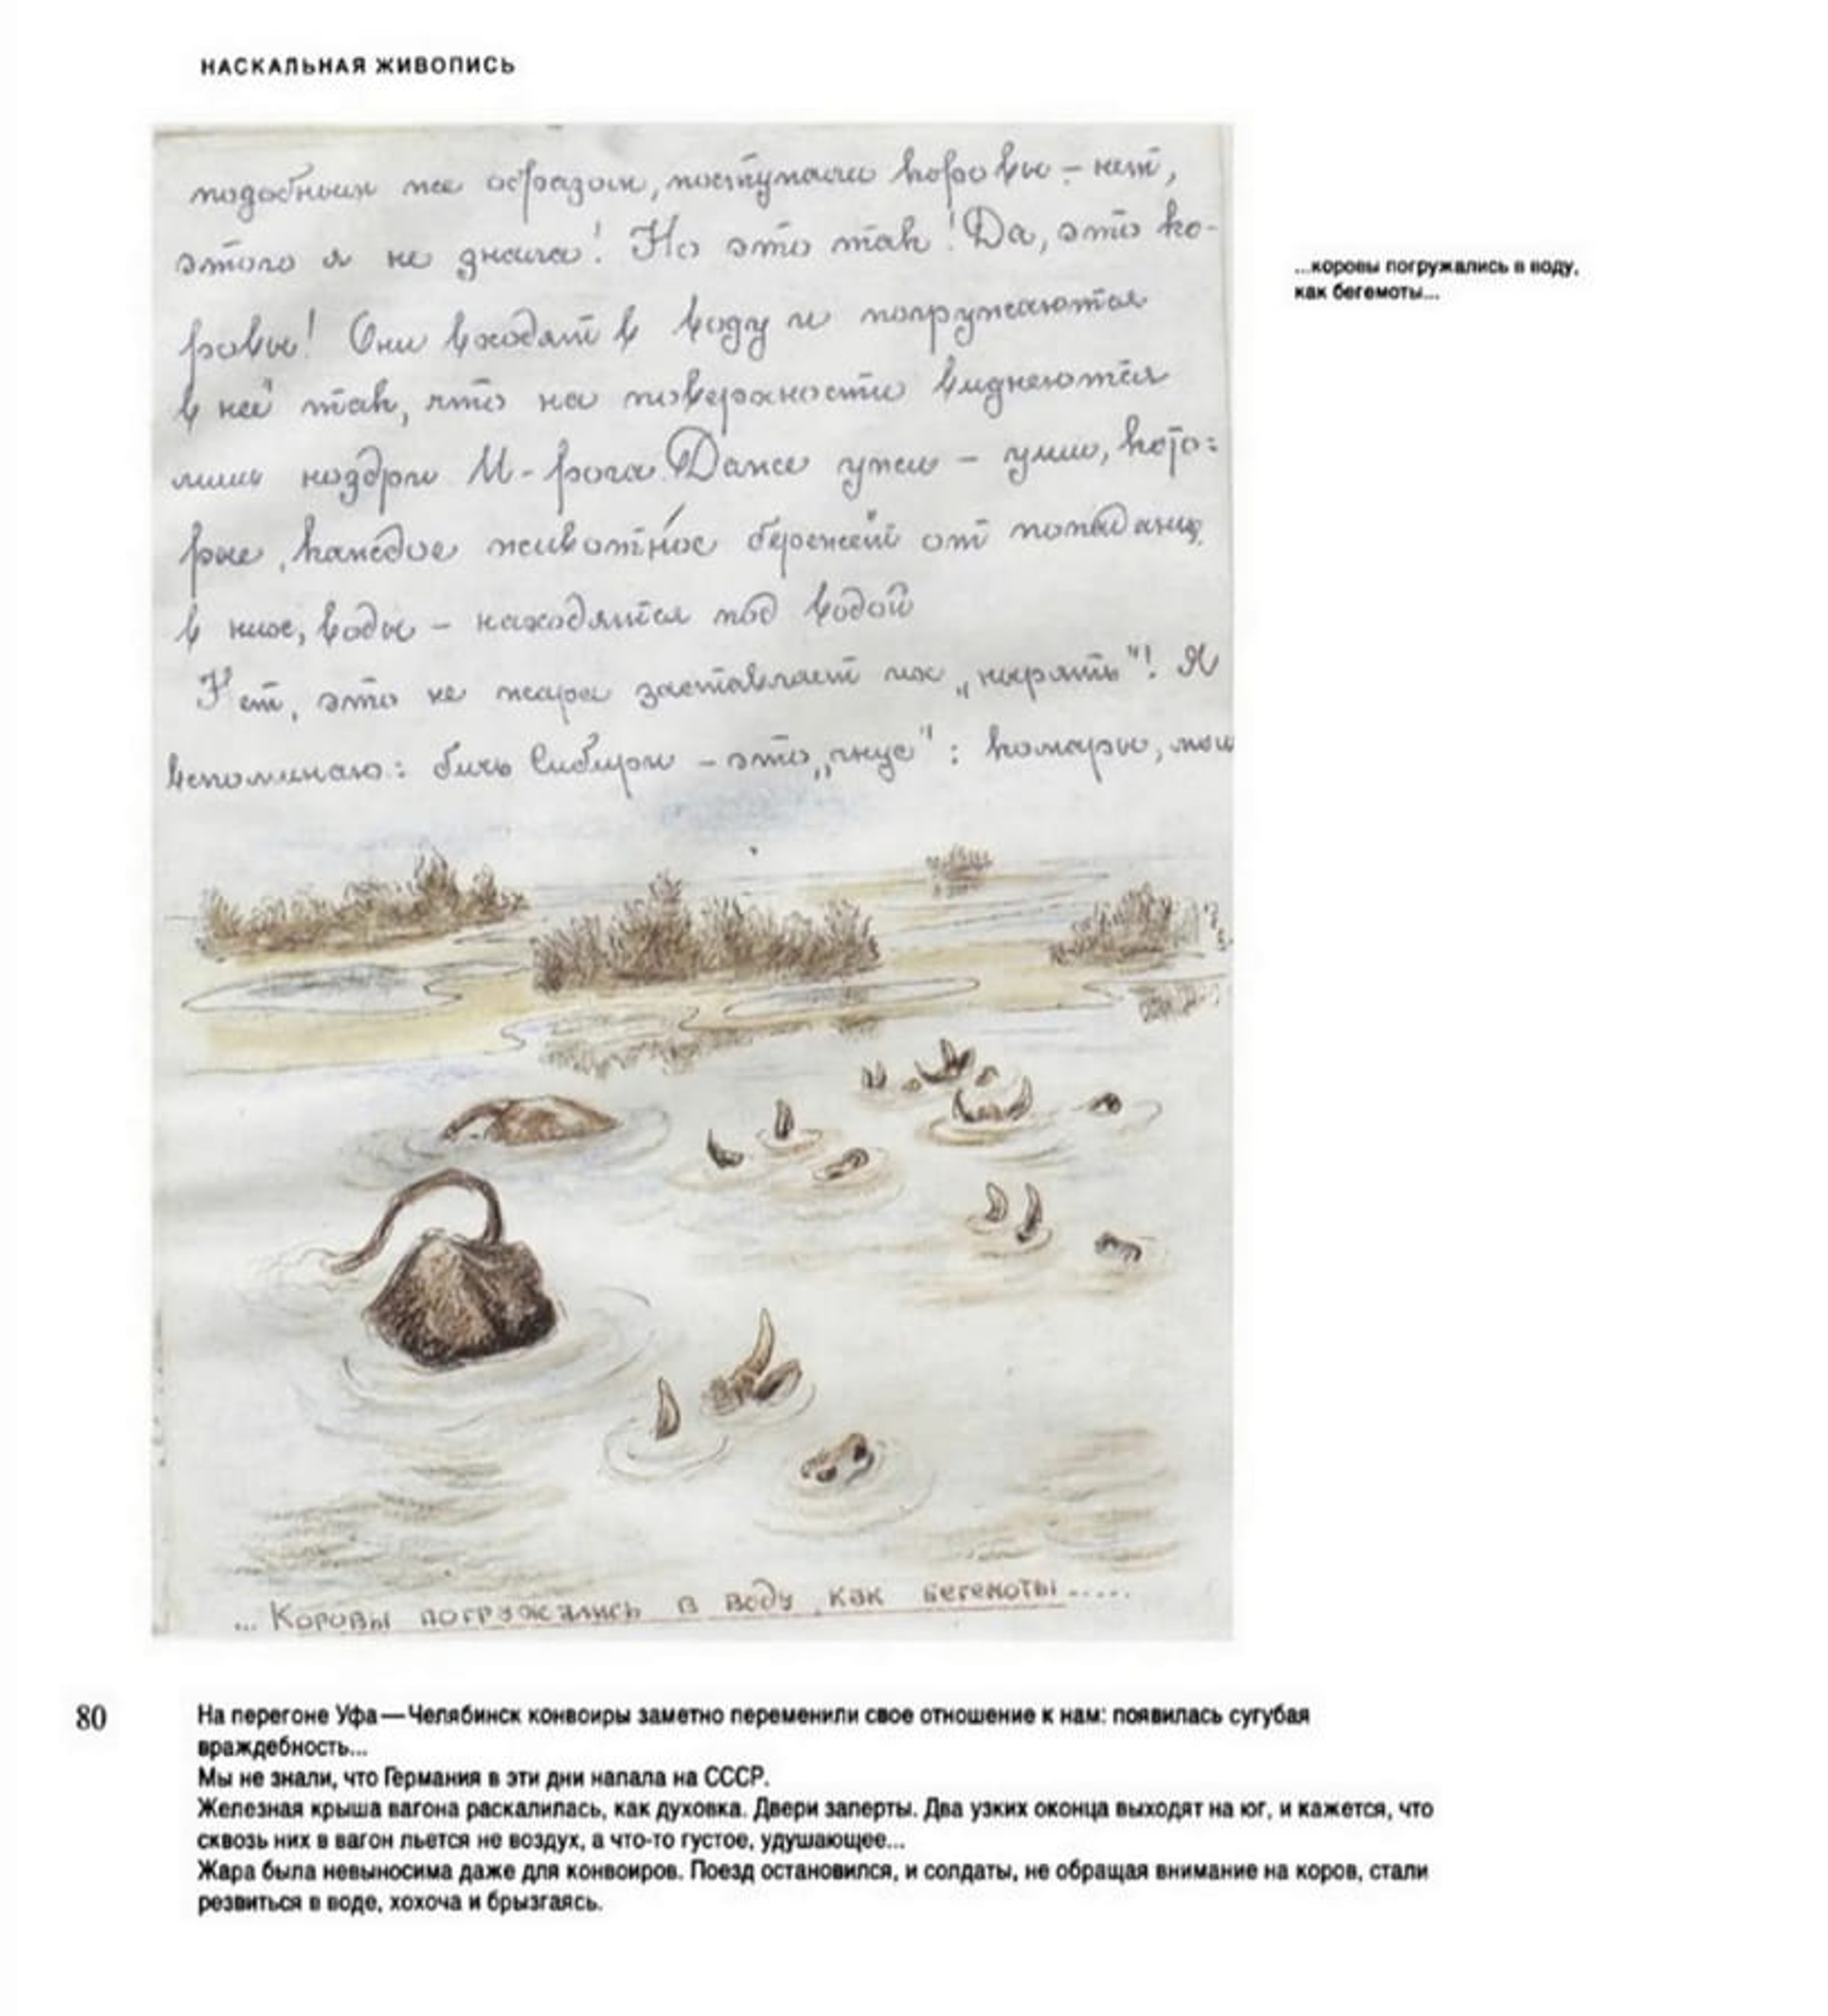 НАСКАЛЬНАЯ ЖИВОПИСЬ
подобным же образом, поступали коровы – нет,
этого я не знала! Но это так! Да, это ко-
ровы! Они входят в воду и погружаются
в неё так, что на поверхности виднеются
лишь ноздри И - рога. Даже уши – уши, кото=
рые, каждое животное бережёт от попадания
в них, воды – находятся под водой
Нет, это не жара заставляет их „нырять"! Я
вспоминаю: бич Сибири – это „гнус": комары, мош
...коровы погружались в воду,
как бегемоты...
... Коровы погружались в воду, как бегемоты.....
80
На перегоне Уфа—Челябинск конвоиры заметно переменили свое отношение к нам: появилась сугубая
враждебность...
Мы не знали, что Германия в эти дни напала на СССР.
Железная крыша вагона раскалилась, как духовка. Двери заперты. Два узких оконца выходят на юг, и кажется, что
сквозь них в вагон льется не воздух, а что-то густое, удушающее...
Жара была невыносима даже для конвоиров. Поезд остановился, и солдаты, не обращая внимание на коров, стали
резвиться в воде, хохоча и брызгаясь.